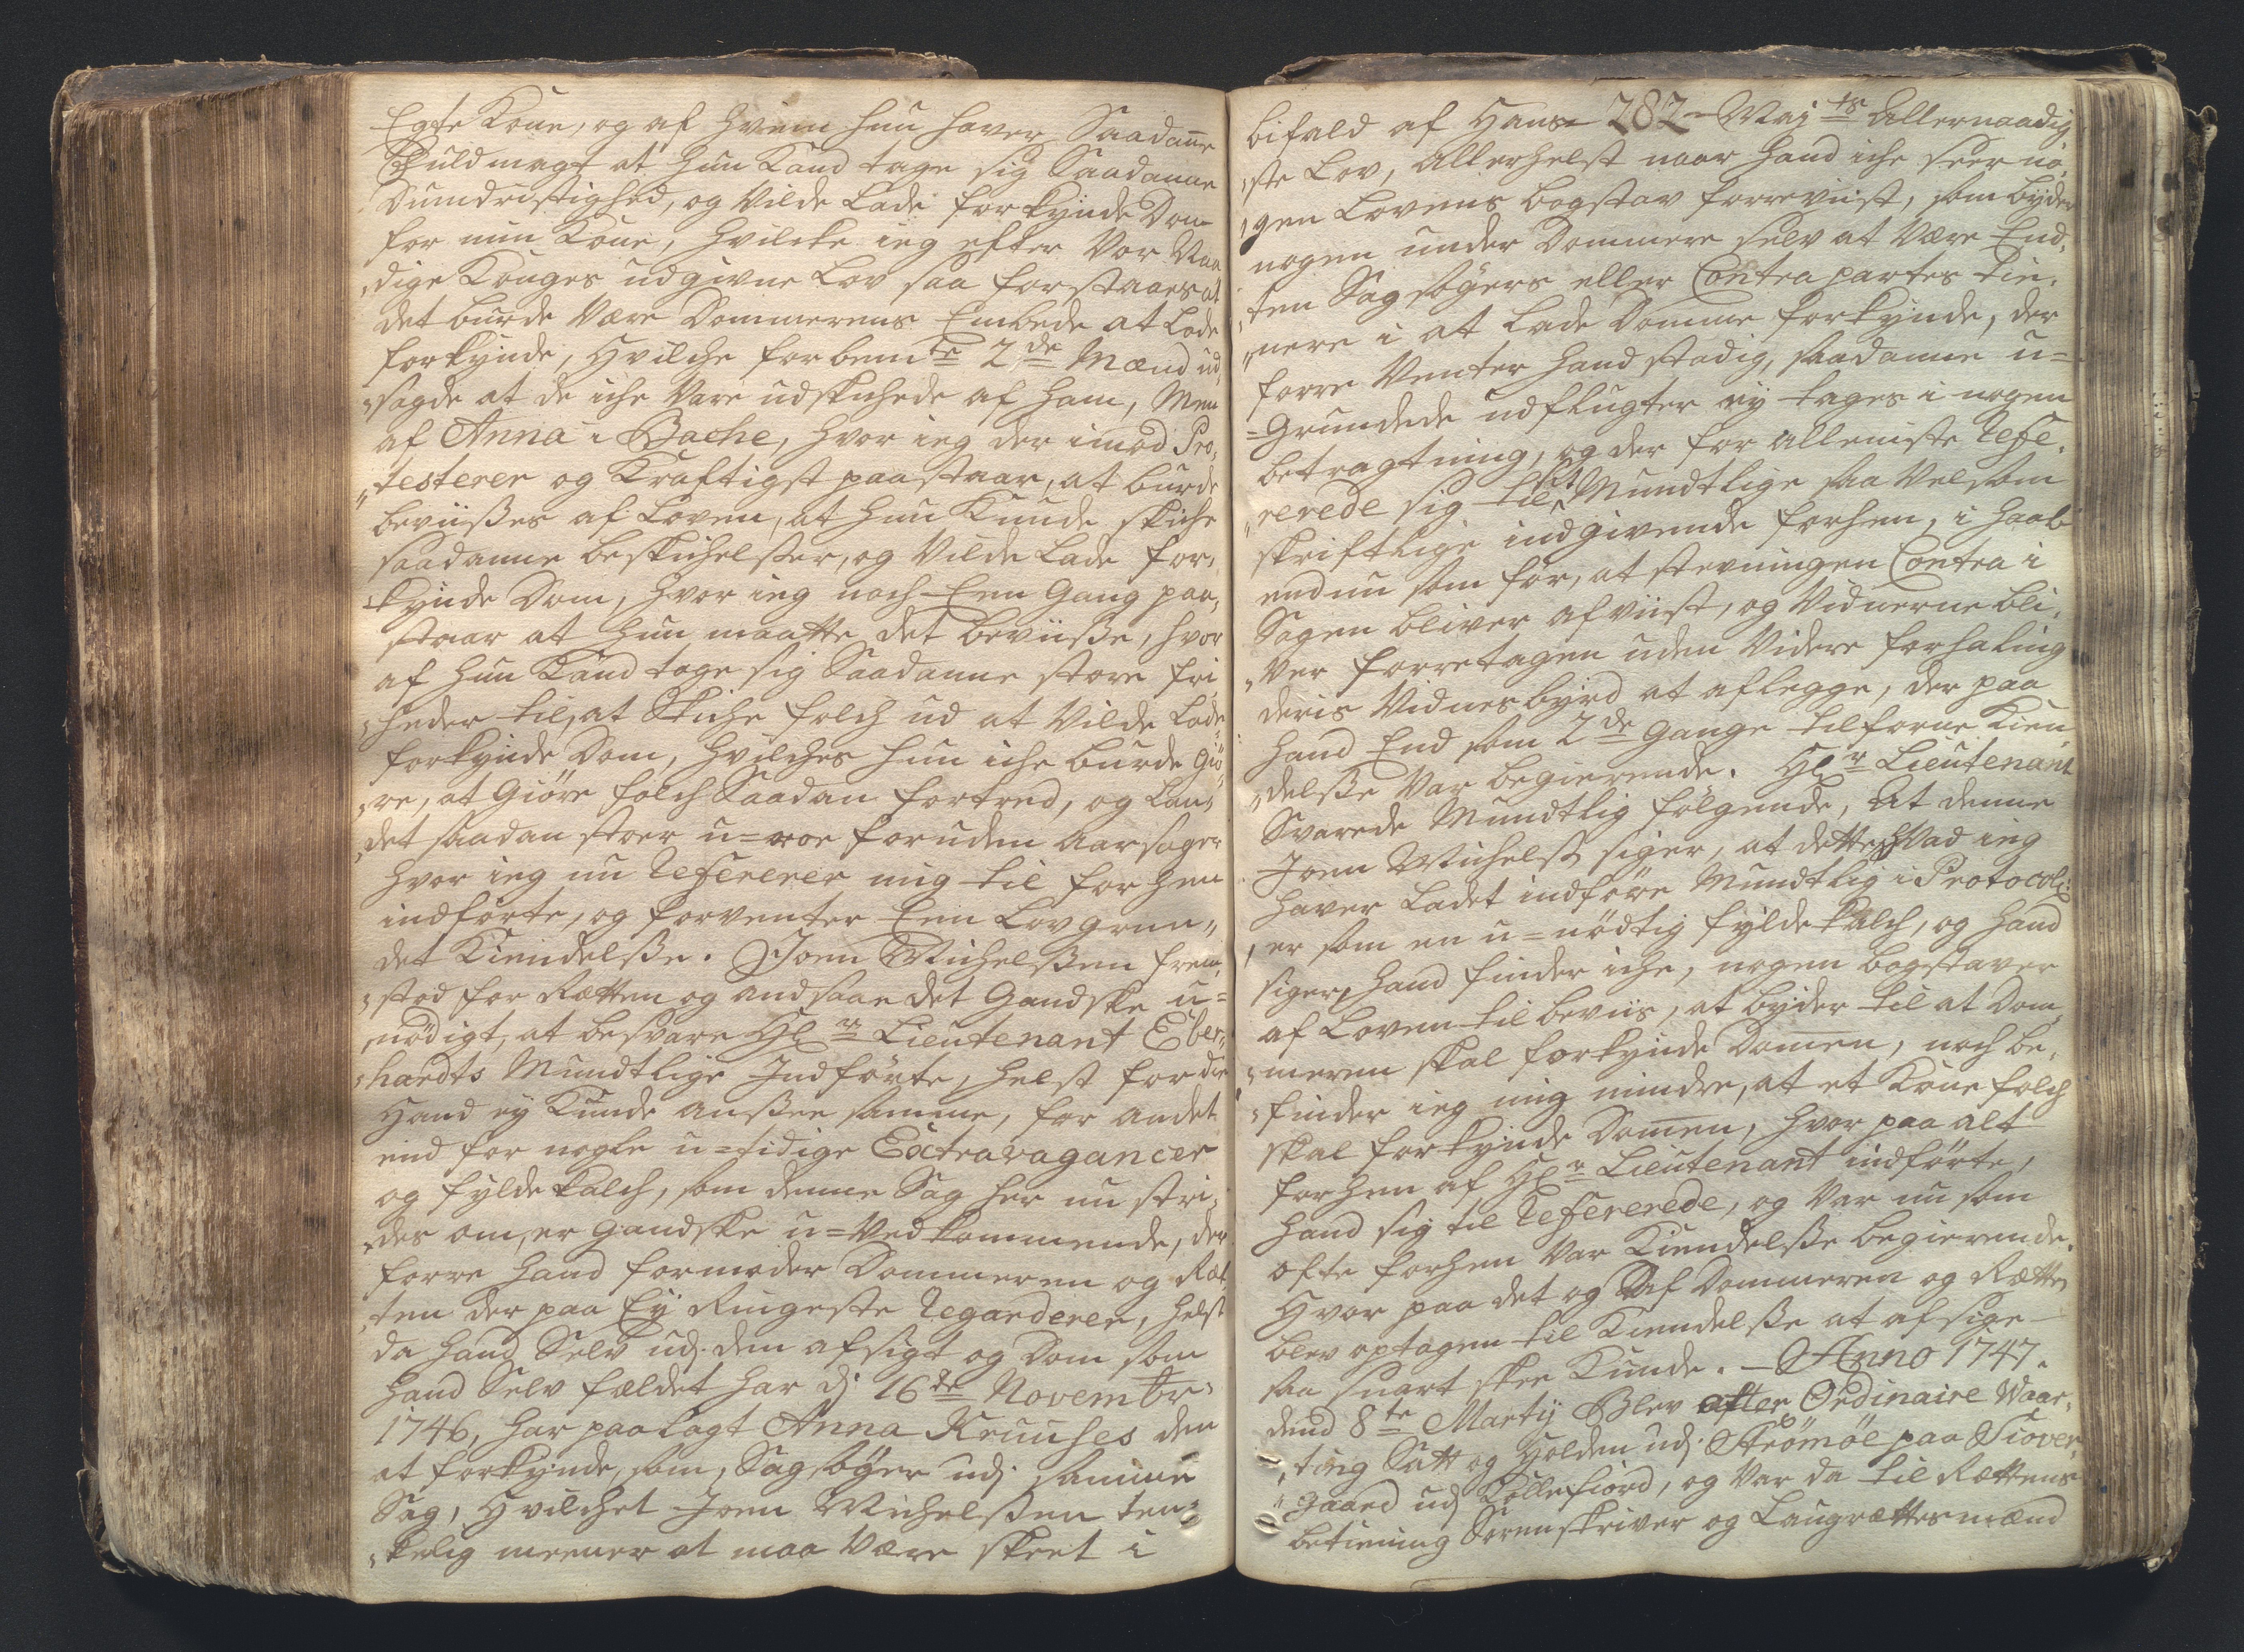 Egte Kone, og af hvem hun haver Saadan̅e
Fuldmagt at hun Kand tage sig Saadanne
Dumdristighed, og Vilde Lade forkynde Dom
for min Kone, hvilcke ieg efter Vor Naa,
,dige Konges udgivne Lov saa forstaaes at
det burde Være Dommerens Embede at Lade
forkynde, Hvilche forbemte 2de Mænd ud,
,sagde at de iche Vare udskichede af ham, Men
af Anna i Bache, hvor ieg der imod Pro,
„testerer og Kraftigst paastaar, at burde
beviißes af Loven, at hun Kunde skiche
saadanne beskichelsser, og Vilde Lade for,
,kynde Dom, hvor ieg noch Een Gang paa,
staar at hun maatte det beviiße, hvor
af hun Kand tage sig Saadanne store fri
,heder til, at Skiche folch ud at Vilde Lade
forkynde Dom, hvilches hun iche burde giö,
,re, at Giöre folch Saadan fortred, og Lan,
,det saadan stoer u=roe foruden Aarsager
hvor ieg nu Refererer mig til forhen
indförte, og forventer Een Lovgrun„
det Kiendelsse. Joen Michelssen frem,
,stod for Rætten og andsaae det Gandske u=
nödigt, at besvare Hl:r Lieutenant Eber,
,hardts Mundtlige Indförte, helst fordi
Hand ey Kunde ansee samme, for andet
end for nogle u=tidige Extravagancer
og fyldekalch, som denne Sag her nu stri,
,des om, er Gandske u=Vedkommende, der
forre hand formoder Dommeren og Ræt
,ten der paa Ey Ringeste Regarderer, helst
da hand Selv udj den afsigt og Dom som
hand Selv fældet har dj 16de Novembr:
1746, har paalagt Anna Kruuses den
at forkynde, som, Sagsöger udj samme
Sag, Hvilchet Joen Michelssen ten,
,kelig meener at maa Være skeet i
bifald af Hans 282 Majts Allernaadig
,ste Lov, allerhelst naar hand iche seer no,
,gen Lovens bogstav forreviist, som byder
nogen under Dommere selv at Være End,
,ten Sagsögers eller Contrapartes tie,
,nere i at Lade Domme forkynde, der
forre Venter hand stadig, saadanne u=
=Grundede udflugter ey tages i nogen
betragtning, og der for alleniste Refe,
„rerede sig til sit Mundtlige saa Velsom
skriftlige indgivende forhen, i haab
endnu som for, at stevningen Contra i
Sagen bliver afviist, og Vidnerne bli,
„ver forretagen uden Videre forhaling
deris Vidnesbyrd at aflegge, der paa
hand End som 2de Gange tilforne Kien
,delsse Var begierende. Hl:r Lieutenant
Svarede Mundtlig fölgende, at denne
Joen Michelss: siger, at dette hvad ieg
haver Ladet indföre Mundtlig i Protocol:
,er som en u=nödtig fyldekalch, og hand
siger, hand finder iche, nogen bogstaver
af Loven til beviis, at byder til at Dom,
,meren skal forkynde Dom̅en, noch be,
,finder ieg mig mindre, at et Konefolch
skal forkynde Dom̅en, hvor paa alt
forhen af Hl:r Lieutenant indförte,
hand sig til Refererede, og Var nu som
ofte forhen Var Kiendelsse begierende.
Hvor paa det og af Dommeren og Rætten
blev optagen til Kiendelsse at afsige
saa snart skee Kunde. — Anno 1747.
dend 8te Martij Blev efter Ordinaire Waar,
,ting Satt og Holden udj Strömöe paa Siover,
„gaard udj Kollefiord, og Var da til Rættens
betiening Sorenskriver og Laugrættesmænd